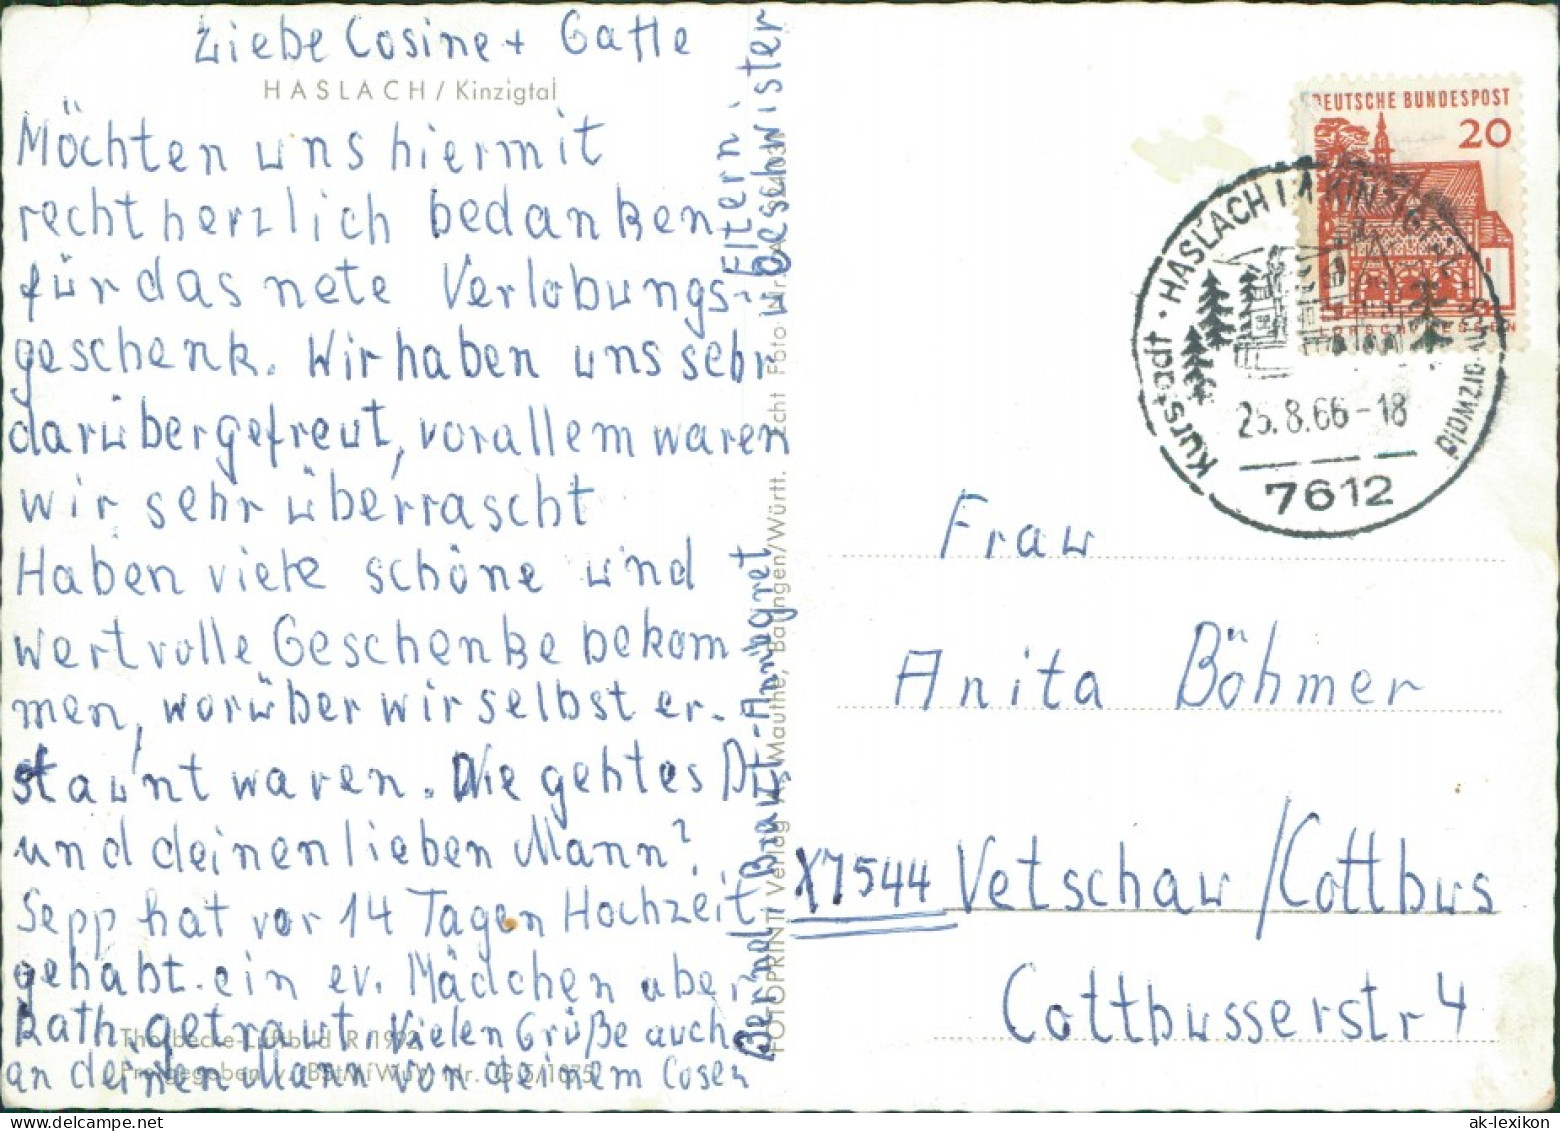 Liebe Cosine + Gatte
HASLACH / Kinzigtal
Möchten uns hiermit
recht herzlich bedanken
für das nete Verlobungs-
geschenk. Wir haben uns sehr
darüber gefreut, vor allem waren
wir sehr überrascht
Haben viele schöne und
wertvolle Geschenke bekom
men, worüber wir selbst er-
staunt waren. Wie geht es Dir
und deinen lieben Mann?
Sepp hat vor 14 Tagen Hochzeit
gehabt. ein ev. Mädchen aber
kath. getraut. Vielen Grüße auch
an deinen Mann von deinem Cosen
Thorbecke-Luftbild R 1992
Bernd Braut-Annegret
Eltern
u Geschwister
FOTOPRINT Verlag A. Mauthe, Balingen/Württ.
DEUTSCHE BUNDESPOST
20
LORSCH HESSEN
Kurstadt · HASLACH IM KINZIGTAL · Schwarzwald
25.8.66-18
7612
Frau
Anita Böhmer
X7544 Vetschau/Cottbus
Cottbusserstr 4
ak-lexikon